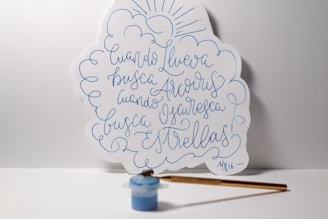 Cuando Llueva
busca Arcoiris
cuando Oscuresca
busca
ESTRELLAS!